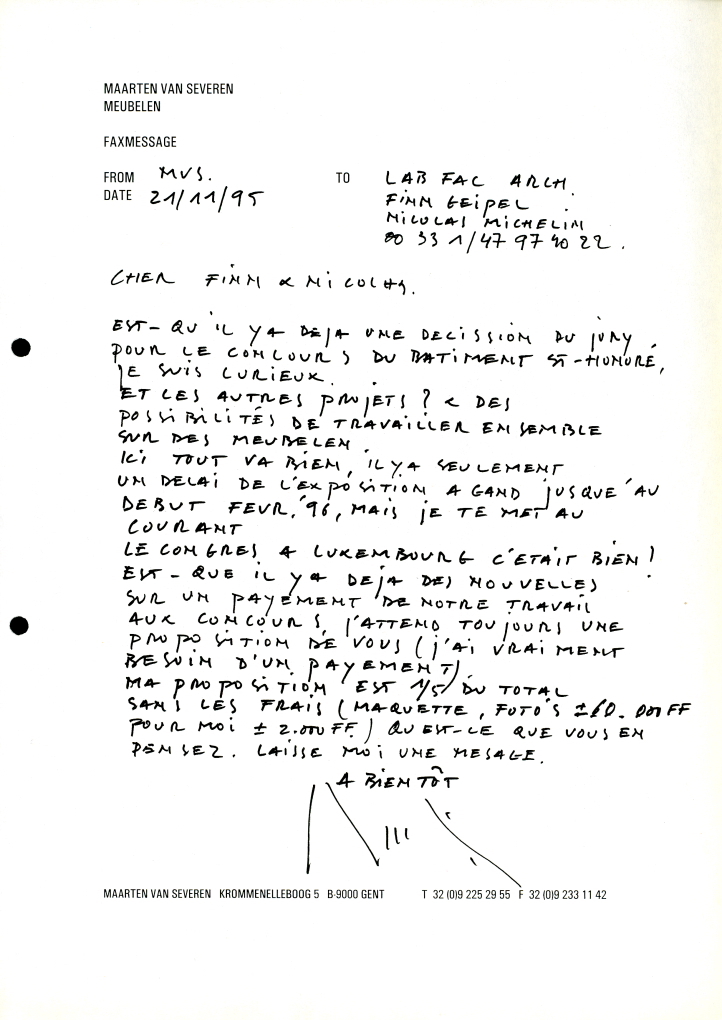 MAARTEN VAN SEVEREN
MEUBELEN
FAXMESSAGE
FROM MVS.
DATE 21/11/95
TO LAB FAC ARCH.
FINN GEIPEL
NICOLAS MICHELIN
00 33 1/47 97 40 22.
CHER FINN & NICOLAS.
EST-QU'IL YA DEJA UNE DECISSION DU JURY
POUR LE CONCOURS DU BATIMENT ST-HONORÉ,
JE SUIS CURIEUX.
ET LES AUTRES PROJETS? & DES
POSSIBILITÉS DE TRAVAILLER ENSEMBLE
SUR DES MEUBELEN
ICI TOUT VA BIEN, IL YA SEULEMENT
UN DELAI DE L'EXPOSITION A GAND JUSQUE'AU
DEBUT FEVR. '96, MAIS JE TE MET AU
COURANT
LE CONGRES A LUXEMBOURG C'ETAIT BIEN!
EST-QUE IL YA DEJA DES NOUVELLES
SUR UN PAYEMENT DE NOTRE TRAVAIL
AUX CONCOURS, J'ATTEND TOUJOURS UNE
PROPOSITION DE VOUS (J'AI VRAIMENT
BESOIN D'UN PAYEMENT)
MA PROPOSITION EST 1/5 DU TOTAL
SANS LES FRAIS (MAQUETTE, FOTO'S ± 10.000 FF
POUR MOI ± 2.000 FF.) QU'EST-CE QUE VOUS EN
PENSEZ. LAISSE MOI UNE MESAGE.
A BIENTÔT
MAARTEN VAN SEVEREN KROMMENELLEBOOG 5 B-9000 GENT T 32 (0)9 225 29 55 F 32 (0)9 233 11 42